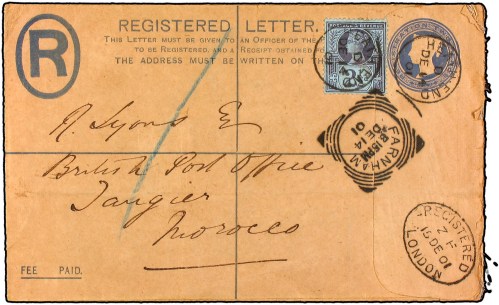 REGISTERED LETTER.
THIS LETTER MUST BE GIVEN TO AN OFFICER OF THE
TO BE REGISTERED, AND A RECEIPT OBTAINED
THE ADDRESS MUST BE WRITTEN ON THE
R
REGISTRATION
DE
FARNHAM
8.15PM
DE 14
01
R. Lyons E
British Post Office
Tangier
Morocco
FEE PAID.
REGISTERED
15 DE 01
LONDON